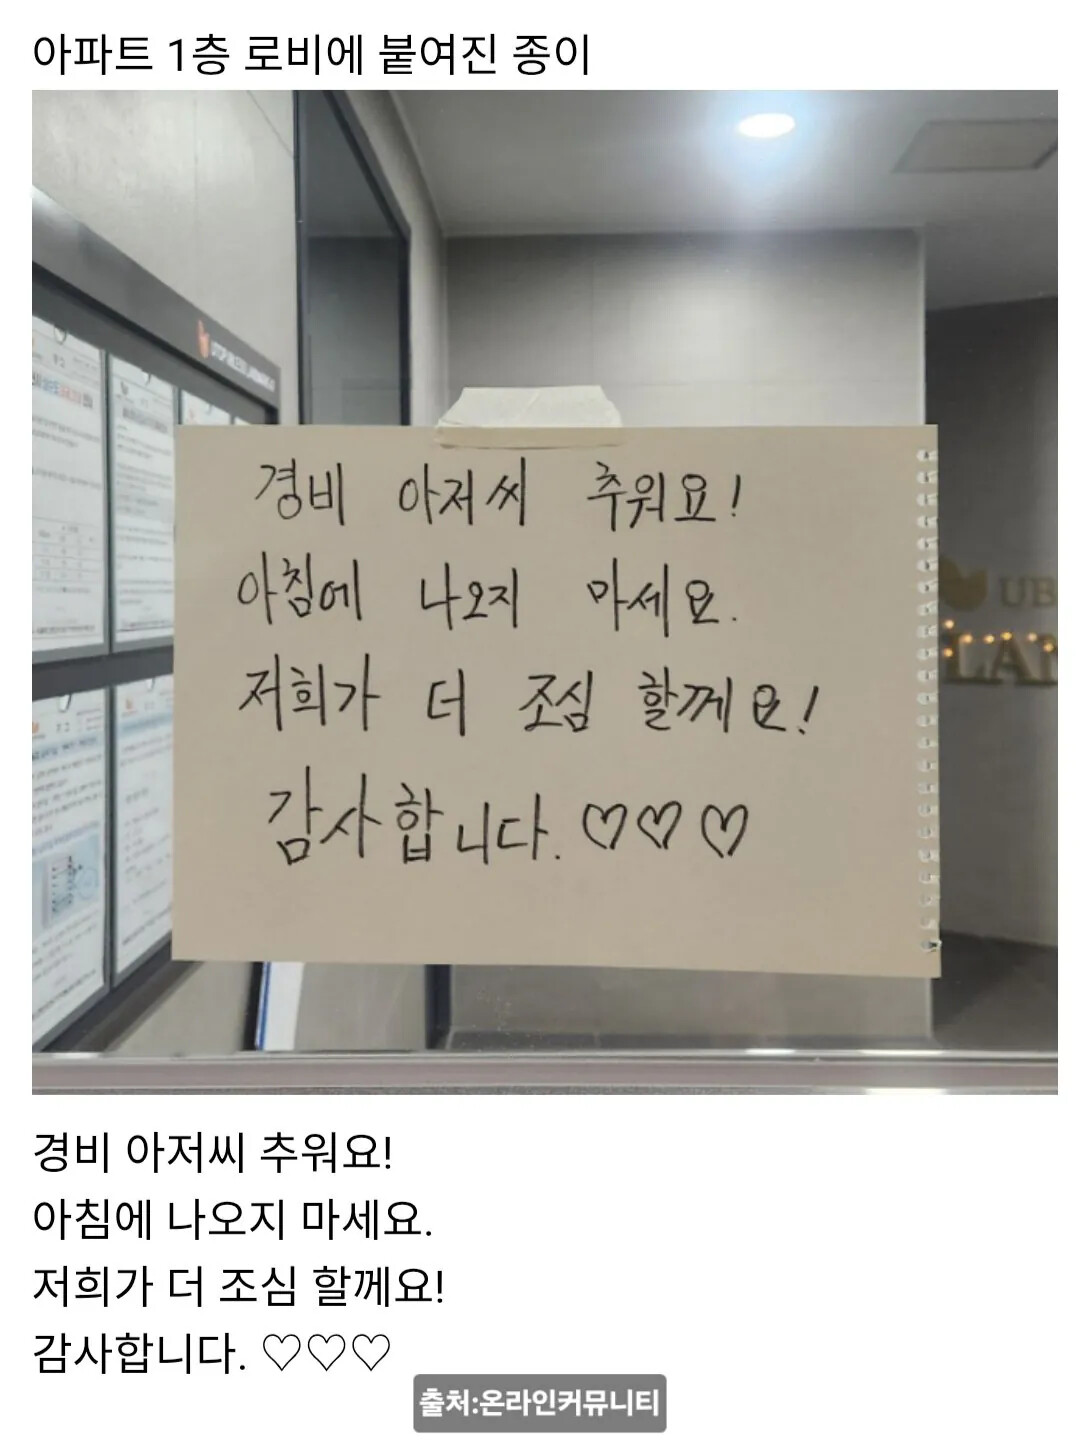 아파트 1층 로비에 붙여진 종이
경비 아저씨 추워요!
아침에 나오지 마세요.
저희가 더 조심 할께요!
감사합니다. ♡♡♡
UB
LAN
경비 아저씨 추워요!
아침에 나오지 마세요.
저희가 더 조심 할께요!
감사합니다. ♡♡♡
출처:온라인커뮤니티